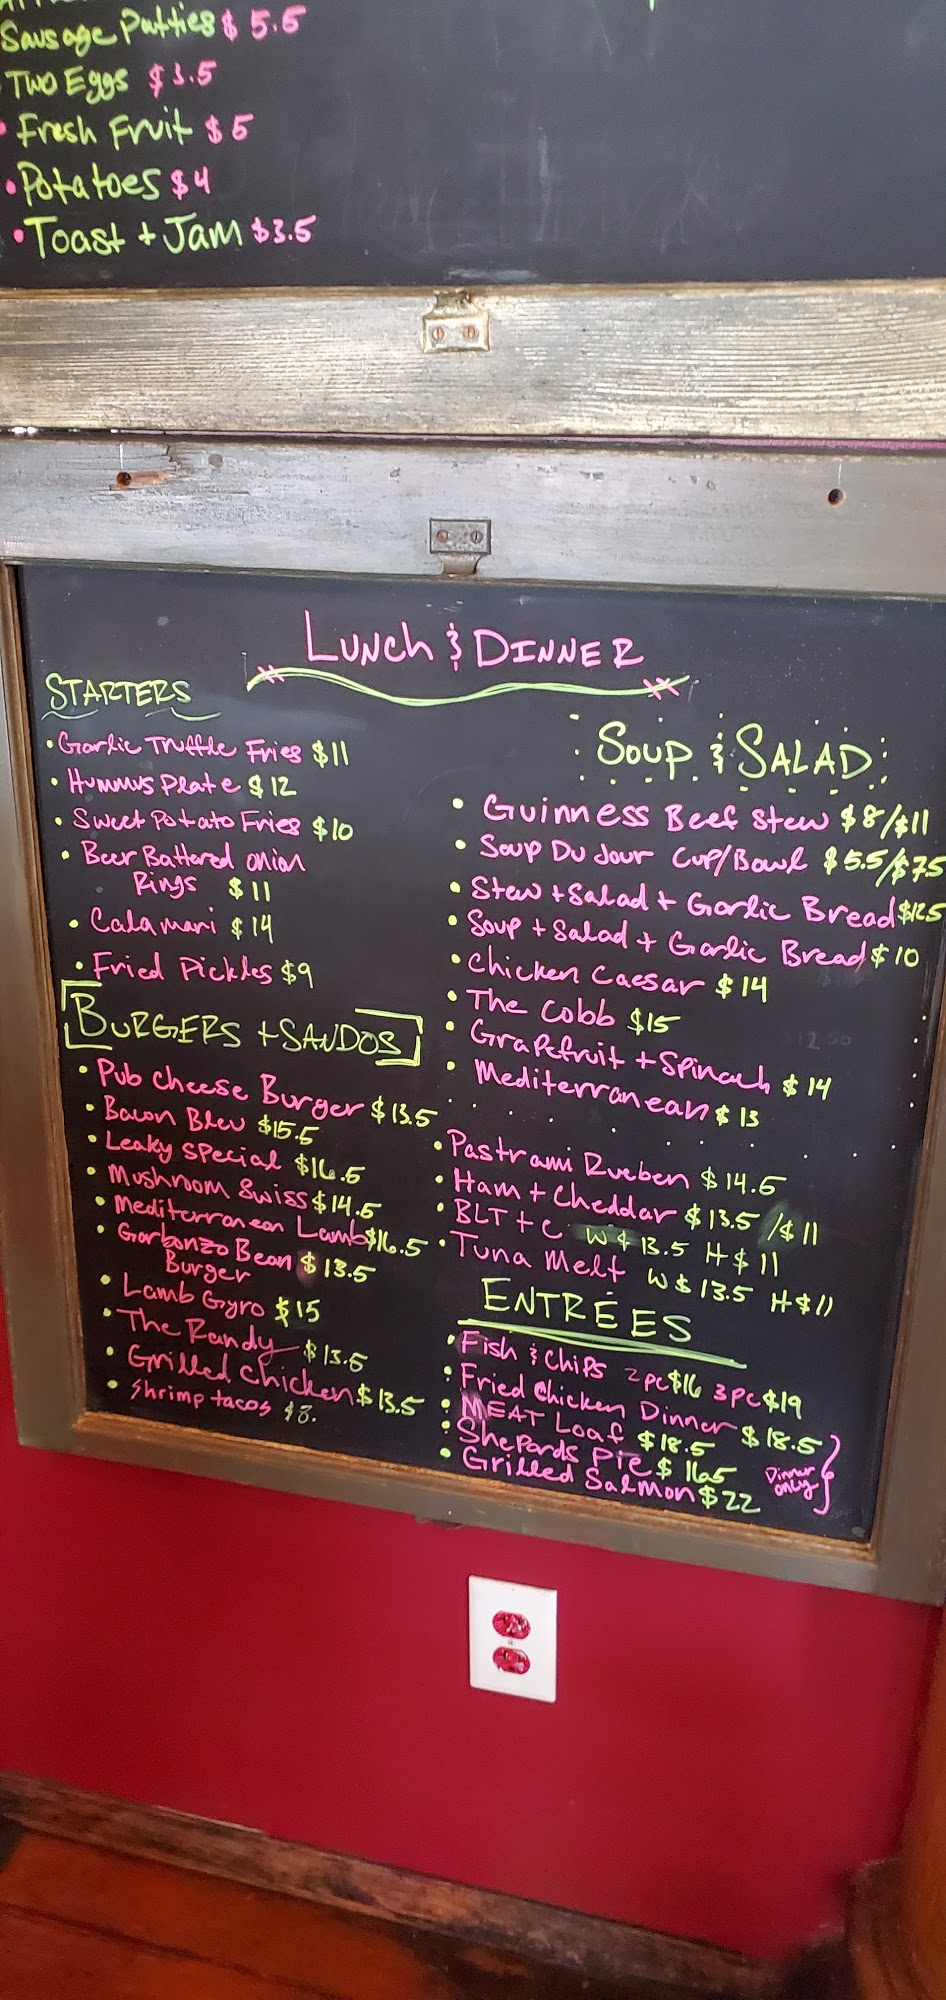 Sausage Patties $ 5.5
Two Eggs $3.5
• Fresh Fruit $5
• Potatoes $4
• Toast + Jam $3.5
LUNCH & DINNER
STARTERS
• Garlic Truffle Fries $11
• Hummus Plate $12
• Sweet Potato Fries $10
• Beer Battered onion
Rings $11
• Calamari $14
• Fried Pickles $9
BURGERS + SANDOS
• Pub Cheese Burger $13.5
• Bacon Bleu $15.5
• Leaky Special $16.5
• Mushroom Swiss $14.5
• Mediterranean Lamb $16.5
• Garbonzo Bean $13.5
Burger
• Lamb Gyro $15
• The Randy $13.5
• Grilled Chicken $13.5
• Shrimp tacos $8.
SOUP & SALAD
• Guinness Beef Stew $8/$11
• Soup Du Jour Cup/Bowl $5.5/$7.5
• Stew + Salad + Garlic Bread $12.5
• Soup + Salad + Garlic Bread $10
• Chicken Caesar $14
• The Cobb $15
• Grapefruit + Spinach $14
• Mediterranean $13
• Pastrami Rueben $14.5
• Ham + Cheddar $13.5/$11
• BLT + C W $13.5 H $11
• Tuna Melt W $13.5 H $11
ENTRÉES
• Fish & Chips 2pc $16 3pc $19
• Fried Chicken Dinner $18.5
• MEAT Loaf $18.5
• Shepards Pie $16.5
• Grilled Salmon $22
Dinner
only